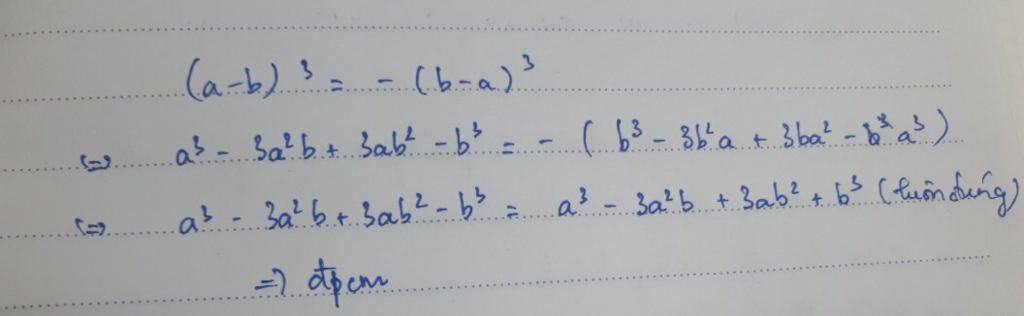 (a-b)³ = - (b-a)³
⇔ a³ - 3a²b + 3ab² - b³ = - (b³ - 3b²a + 3ba² - a³)
⇔ a³ - 3a²b + 3ab² - b³ = a³ - 3a²b + 3ab² + b³ (luôn đúng)
=> đpcm